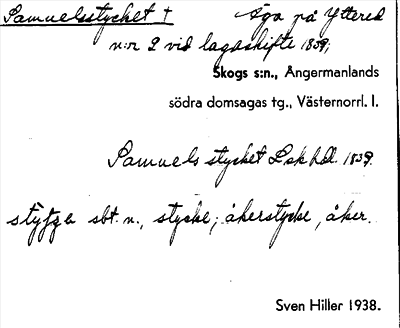 Samuelsstycket † Äga på Yttered
n:o 2 vid lagaskifte 1839;
Skogs s:n., Ångermanlands
södra domsagas tg., Västernorrl. l.
Samuels stycket Lskhdl. 1839.
sbt. n., stycke; åkerstycke, åker.
Sven Hiller 1938.